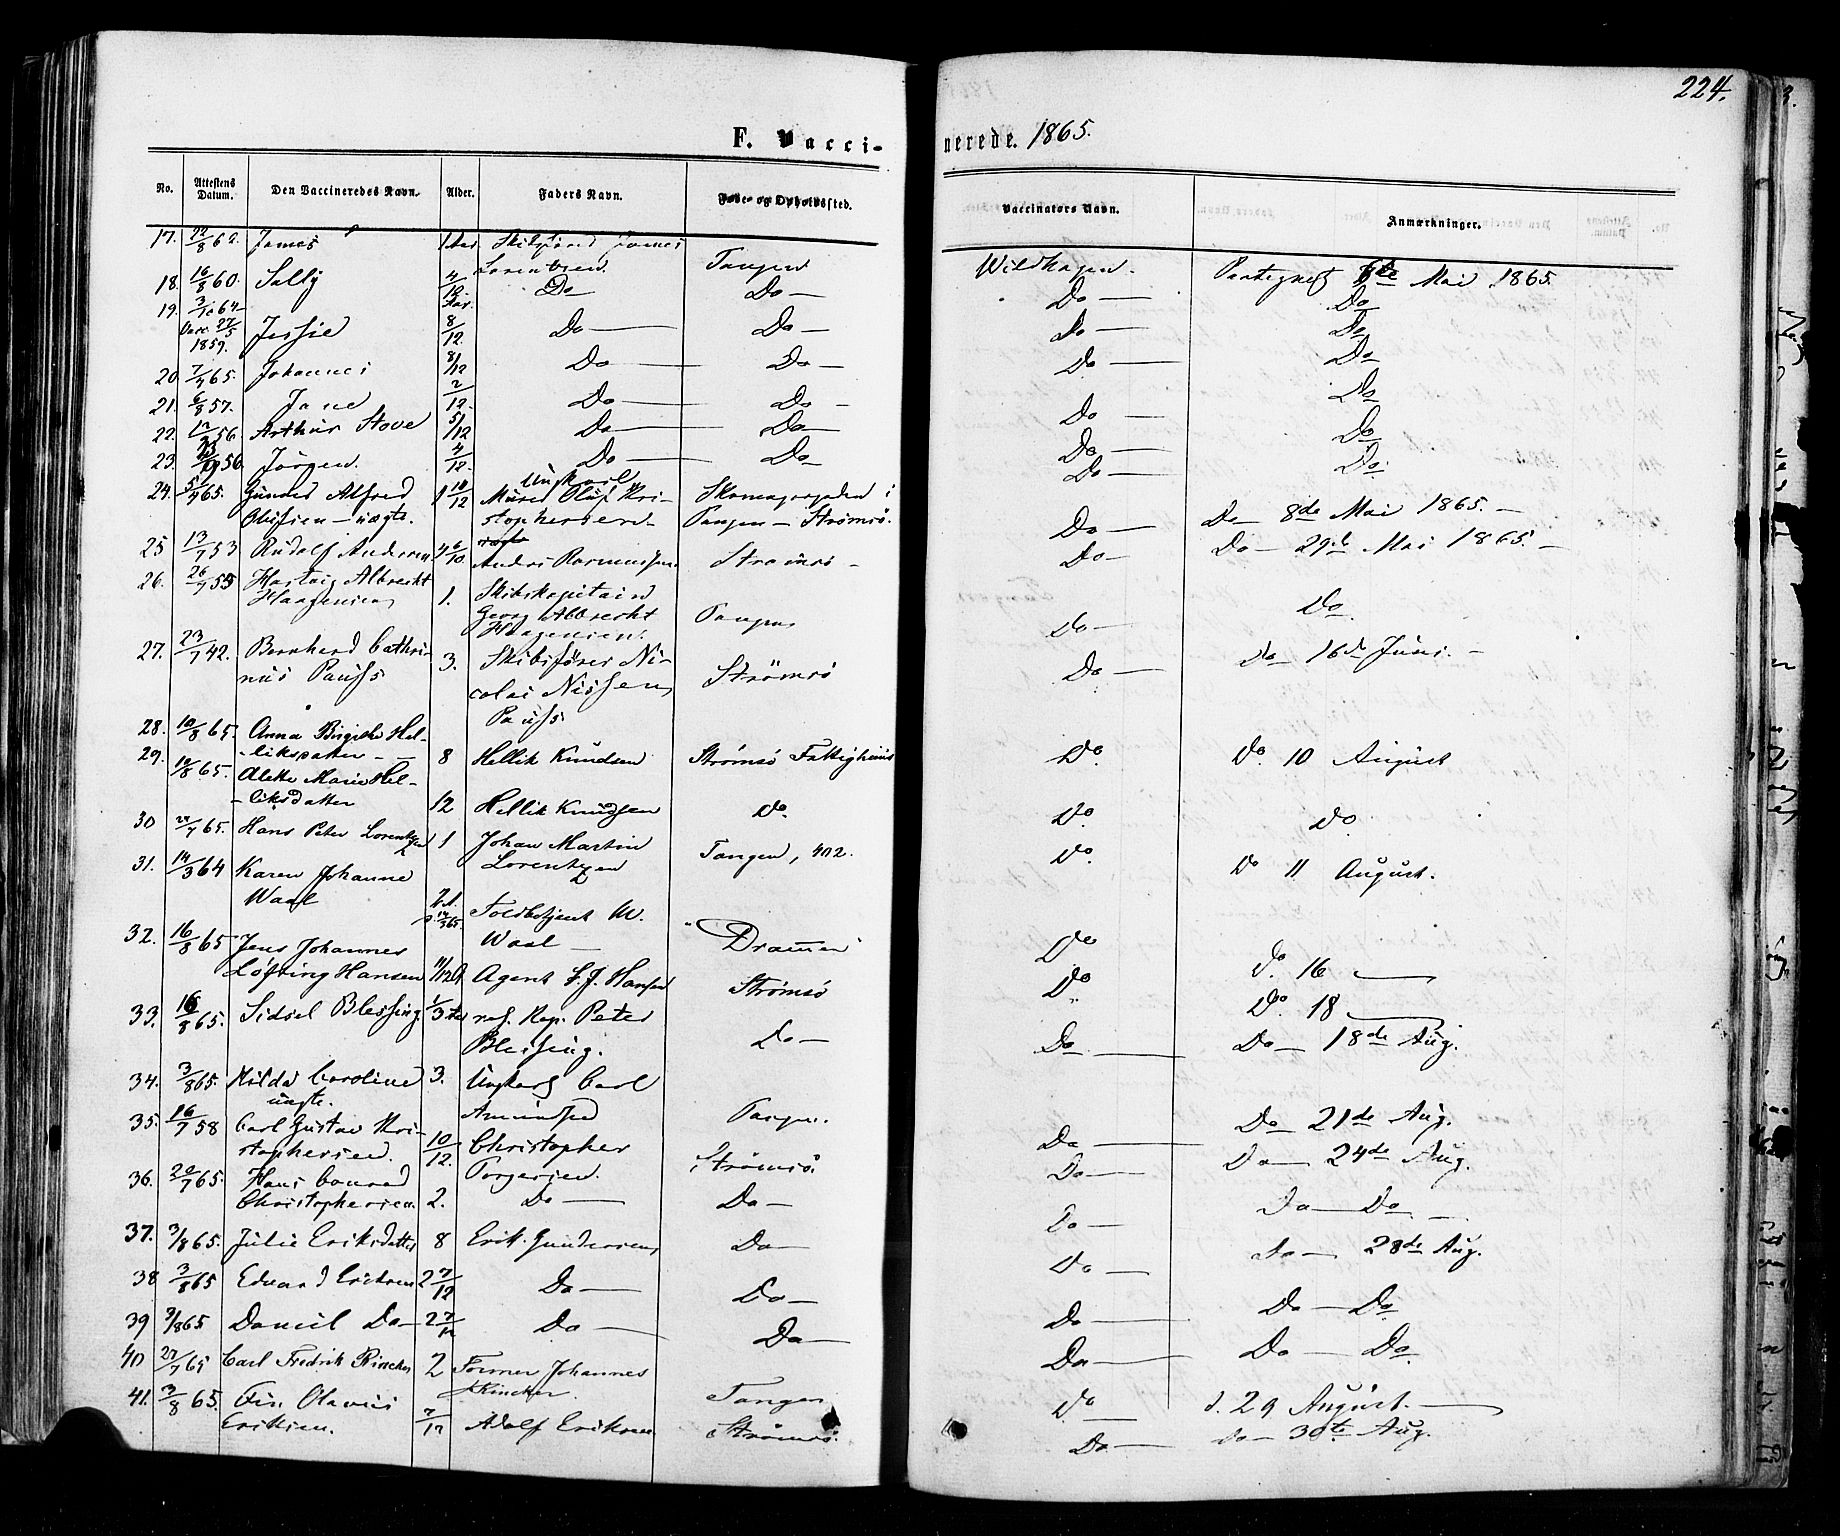 224.
F. Vaccinerede. 1865.
No. Attestens Datum. Den Vaccineredes Navn. Alder. Faders Navn. Føde- og Opholdssted. Vaccinators Navn. Anmærkninger.
17. 22/8 62. James 1 Aar Skibsförer James Tangen Wildhagen. Paategnet 6te Mai 1865.
Lorentzen.
18. 16/8 60. Sally 4/12 Do Do — Do — Do
19. 3/10 64
Vacc. 27/5 Jessie 8/12 Do — Do — Do — Do
1859.
20. 7/4 65. Johannes 8/12 Do — Do — Do — Do
21. 6/8 57. Jane 2/12. Do — Do — Do — Do
22. 56. Arthur Stove 5/12 Do — Do — Do — Do
23. 56 Jörgen. 4/12. Do — Do Do — Do.
24. 5/4 65. Alfred 1 10/12 Ungkarl Skomagergaden i
Olufsen — uægte. Murer Oluf Kri- Tangen — Strömsö. Do — Do — 8de Mai 1865. —
stophersen
25 13/7 53 Rudolf Andersen 4 6/10. Anders Rasmussen Strömsö — Do — Do — 29de Mai 1865. —
26. 26/7 55 Hartvig Albrecht 1. Skibskapitain
Haagensen Georg Albrecht Tangen Do — Do.
Haagensen.
27. 23/7 42. Bernhard Cathri- 3. Skibsförer Ni- Strömsö Do — Do 16de Juni. —
nus Pauss colai Nissen
Pauss
28. 10/8 65. Anna Birgithe Hel-
liksdatter — 8 Hellik Knudsen Strømsø Fattighuus Do. Do. 10 August
29. 10/8 65. Alette Marie Hel-
liksdatter 12 Hellik Knudsen Do. Do. Do.
30 65. Hans Peter Lorentzen 1 Johan Martin Tangen, 402. Do. Do 11 August.
Lorentzen
31. 14/3 64 Karen Johanne
Waal Toldbetjent M. Drammen Do Do. 16 —
Waal —
32. 16/8 65 Jens Johannes
Løfting Hansen 11/12 Agent F. J. Hansen Strömsö Do Do. 18 —
33. 16/8 65. Sidsel Blessing 1/3 Aar Rep. Peter Do — Do — Do — 18de Aug.
Blessing.
34. 3/8 65. Hilda Caroline 3. Ungkarl Carl
uægte. Amundsen Tangen. Do — Do 21de Aug.
35. 16/7 58 Carl Gustav Kri-
stophersen. 10/12. Christopher Strömsö. Do — Do — 24de Aug.
Torgersen.
36. 20/7 65. Hans Conrad
Christophersen. 2. Do — Do — Do — Do — Do. —
37. 3/8 65. Julie Eriksdatter 8 Erik Gundersen Do — Do — Do — 28de Aug.
38 3/8 65 Edvard Eriksen 2 7/12 Do — Do — Do — Do — Do
39 3/8 65 Daniel Do — 2 7/12 Do — Do — Do — Do — Do.
40 27/7 65 Carl Fredrik Rincker 2 Former Johannes Tangen Do — d. 29 August. —
Rincker.
41. 3/8 65. Olavus
Eriksen. 7/12 Adolf Eriksen Strömsö. Do — Do — 30te Aug.